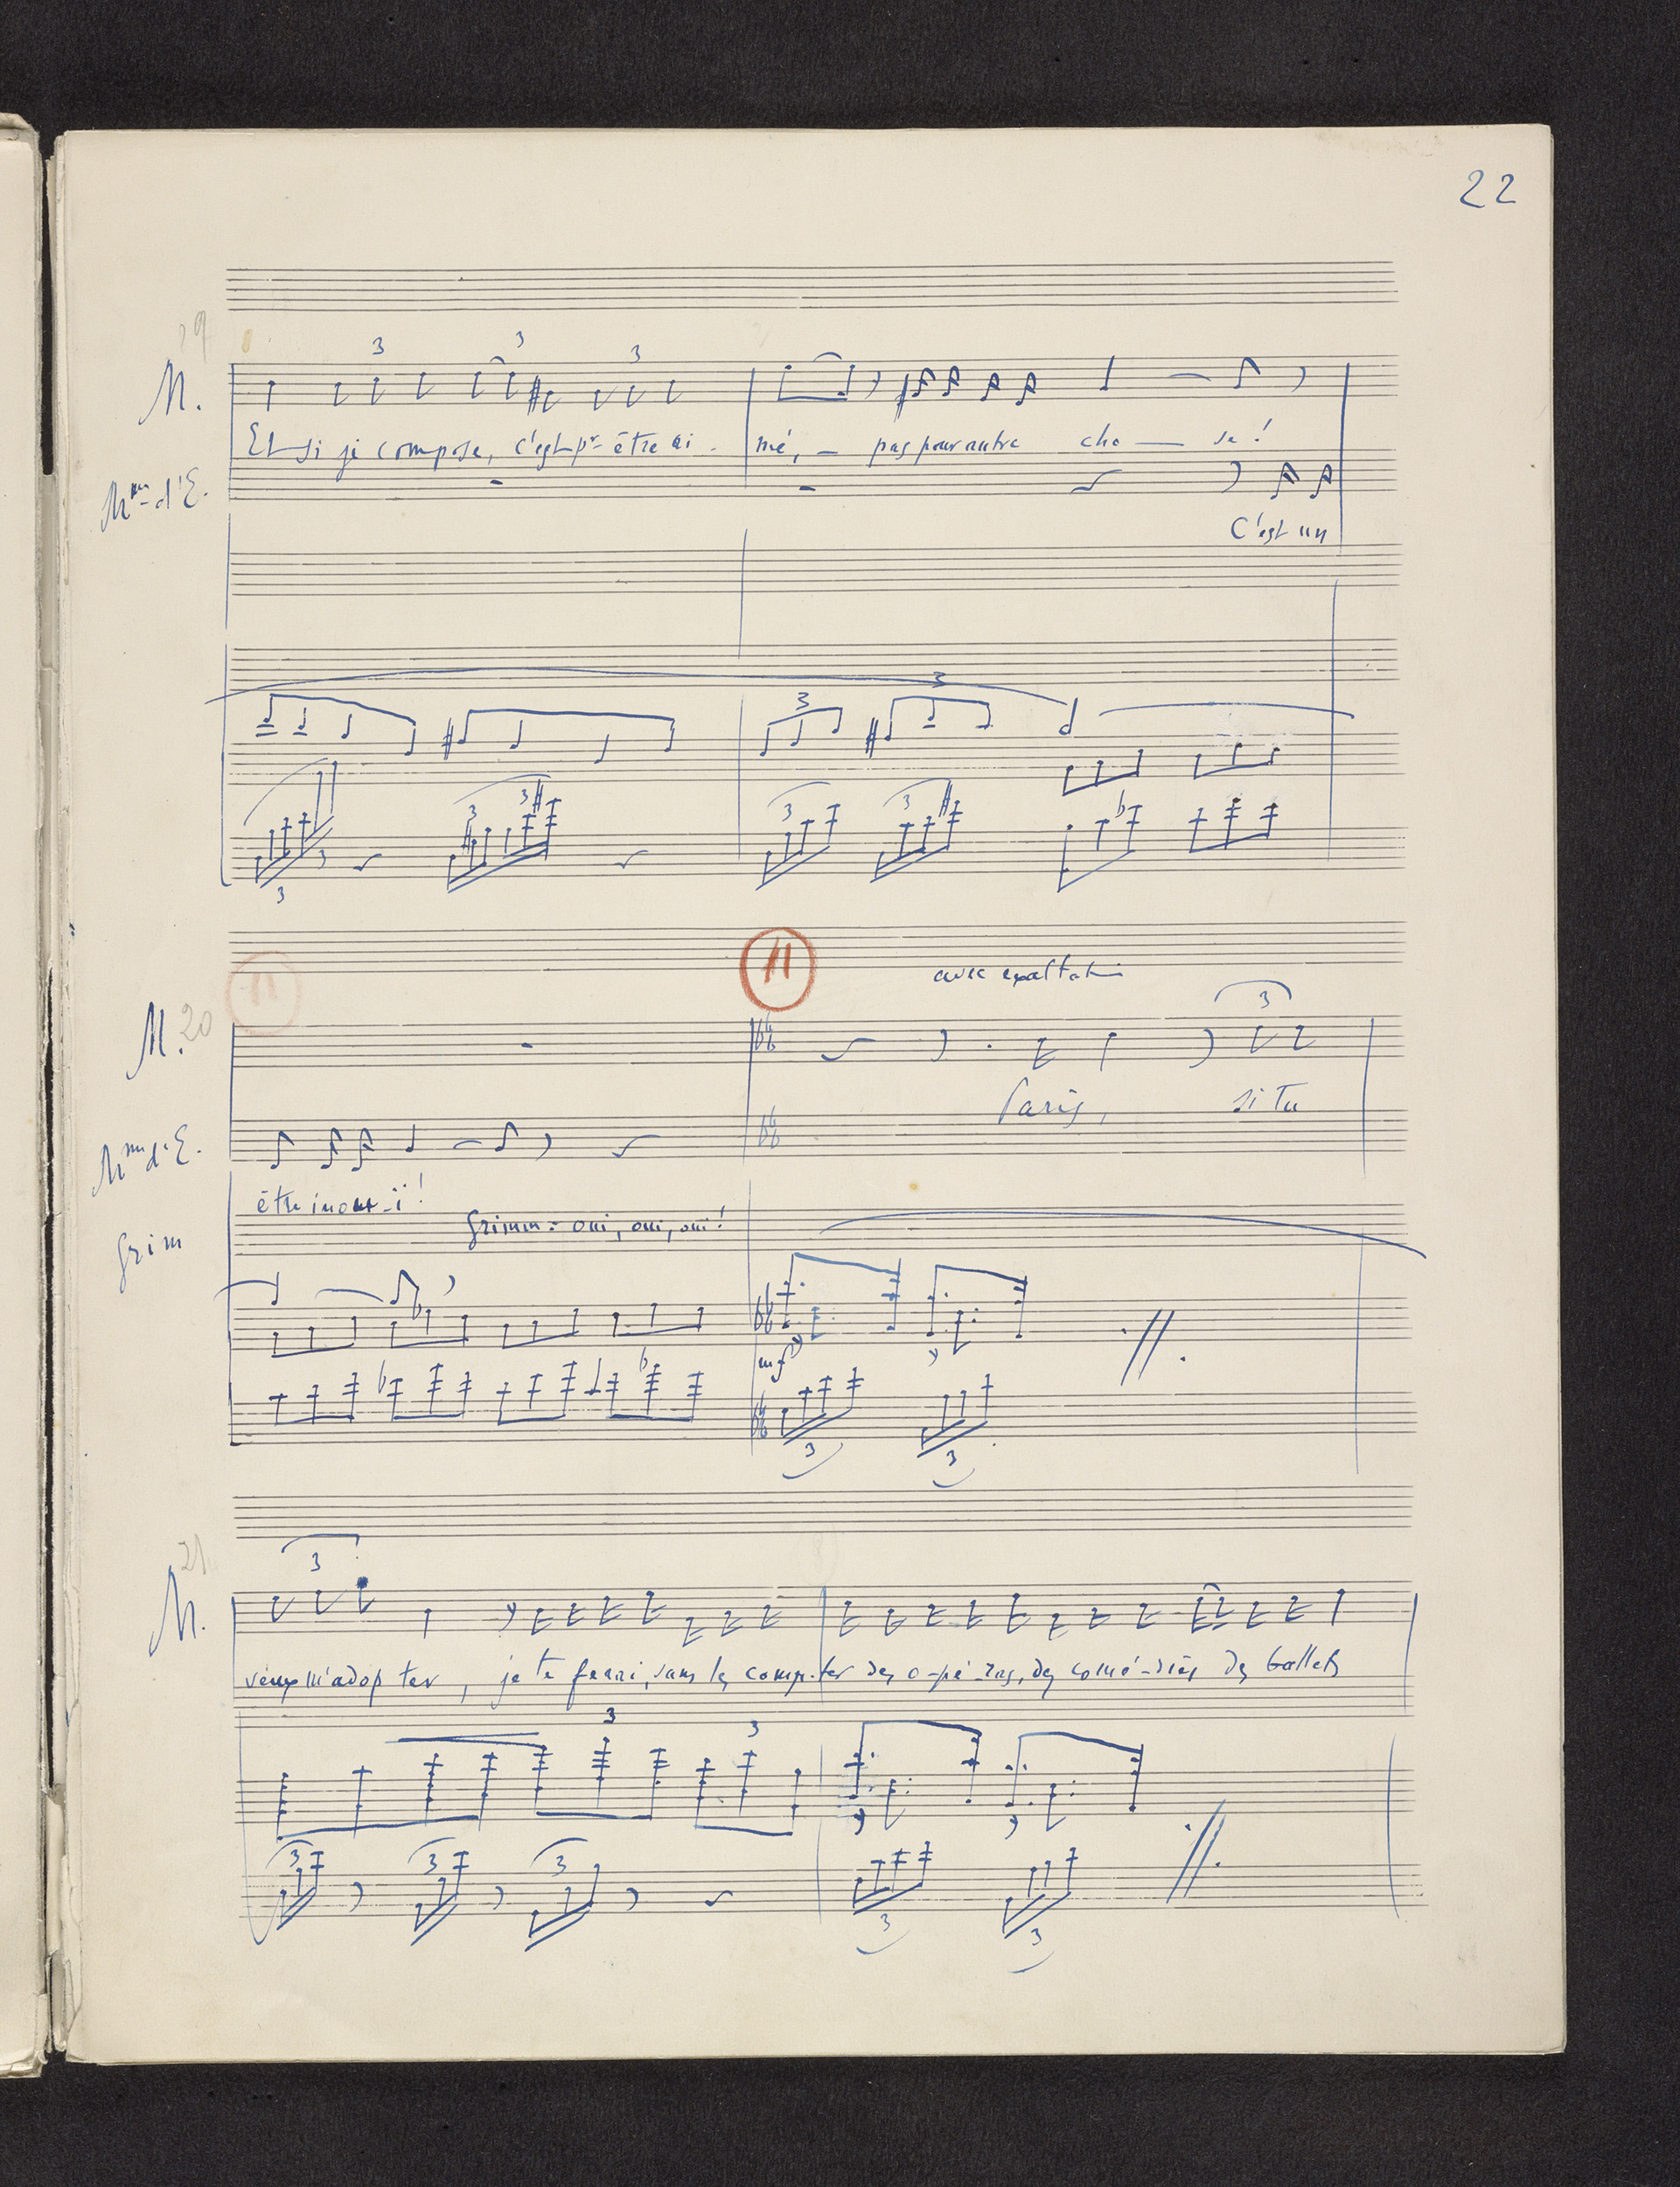 22
19
3 3 3
M.
Et si je compose, c'est pr être ai - mé, _ pas pour autre cho — se !
Mme d'E.
C'est un
3 3
3 3 3 3 3
3
11 11
avec exaltation
M. 20
3
Paris, si tu
Mme d'E.
être inou-ï !
Grimm : oui, oui, oui !
Grim
mf
3 3
21
3
M.
veux m'adop ter, je te ferai, sans les comp-ter des o-pé-ras, des comé-dies des ballets
3 3
3 3 3
3 3